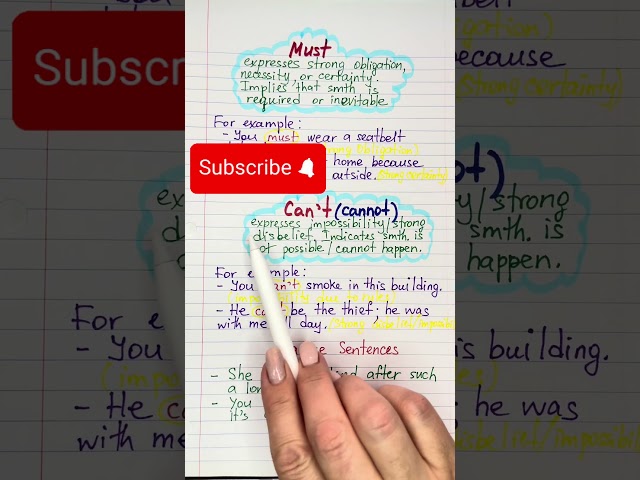 Must
expresses strong obligation,
necessity, or certainty.
Implies that smth is
required or inevitable
For example:
- You must wear a seatbelt
Obligation)
home because
outside. (strong certainty)
Subscribe
Can't (cannot)
expresses impossibility/strong
disbelief. Indicates smth. is
not possible/cannot happen.
For example:
- You can't smoke in this building.
(impossibility due to rules)
- He can't be the thief; he was
with me all day. (strong disbelief/impossi
Sentences
- She after such
a
- You
It's